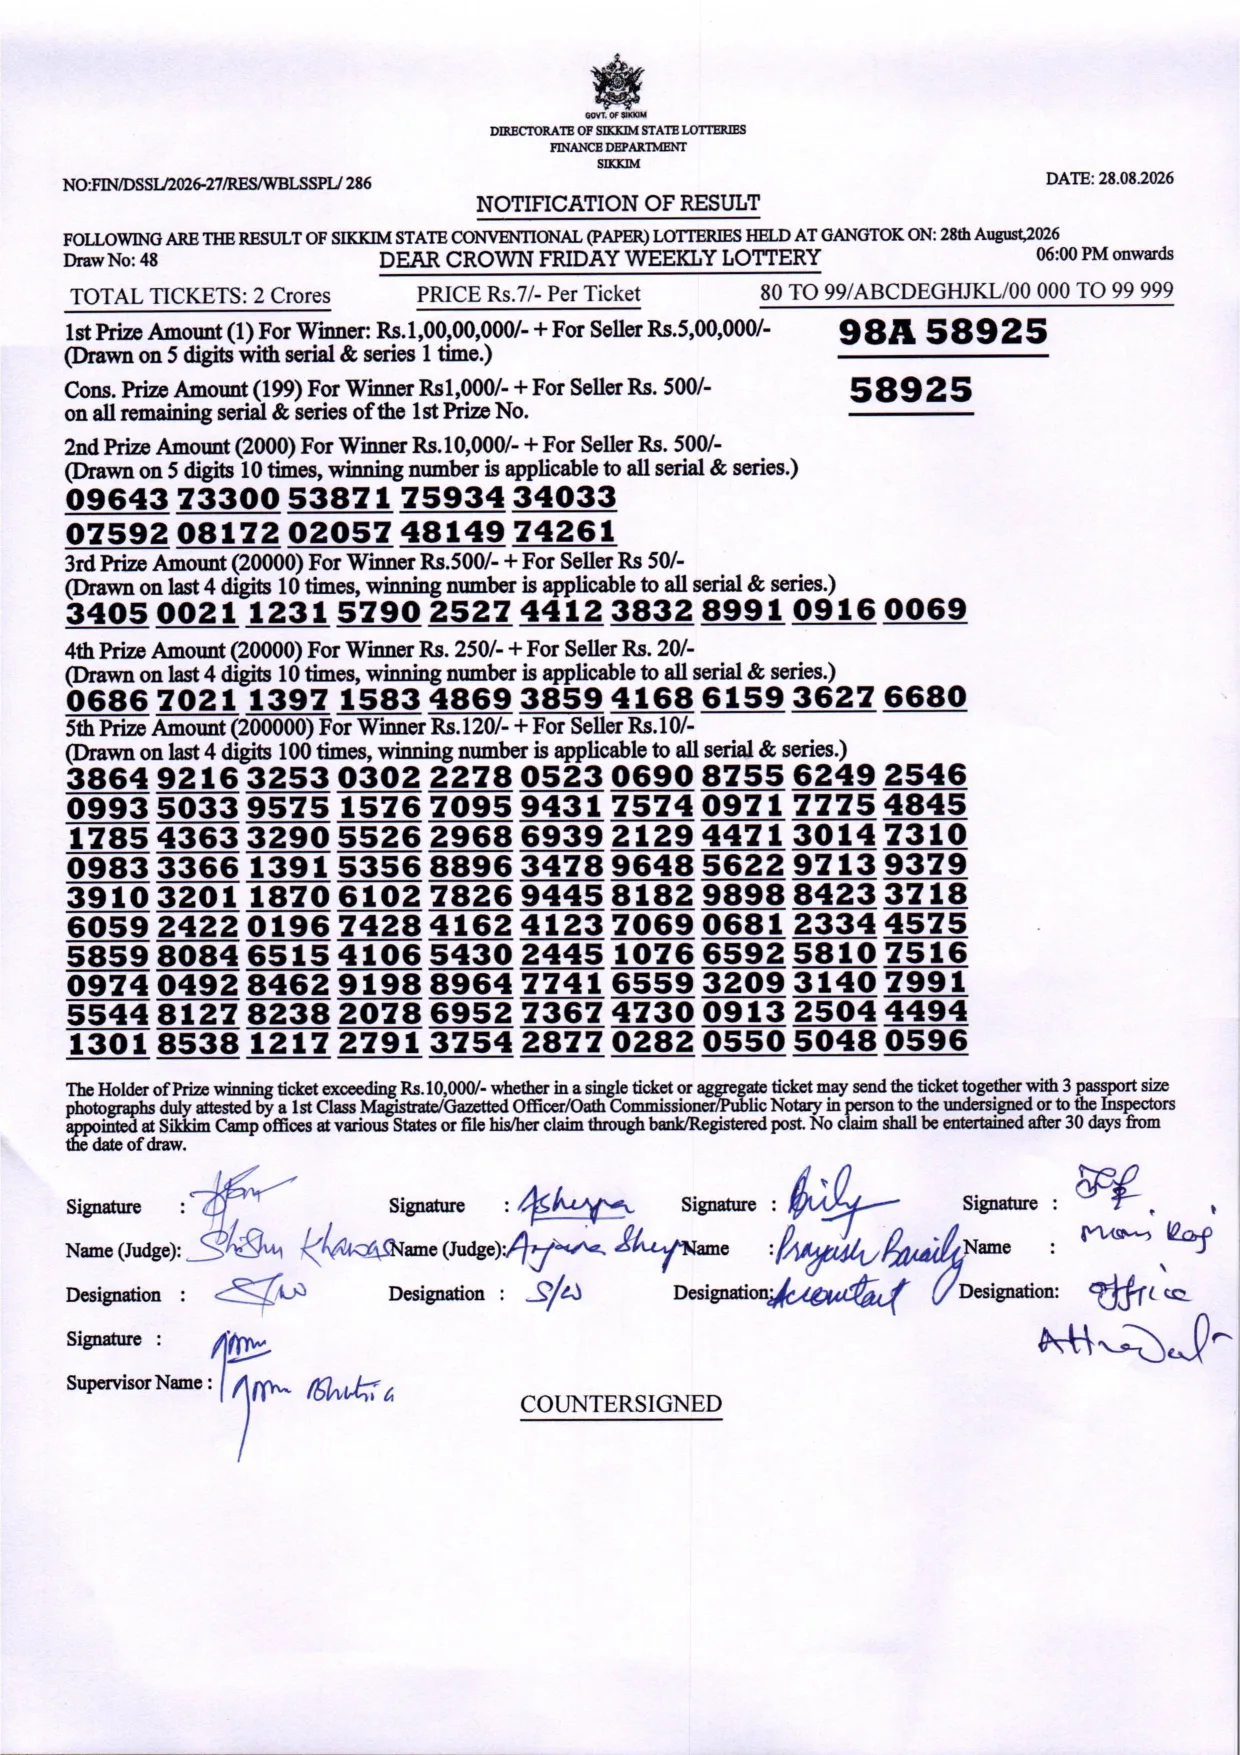 GOVT. OF SIKKIM
DIRECTORATE OF SIKKIM STATE LOTTERIES
FINANCE DEPARTMENT
SIKKIM
NO:FIN/DSSL/2026-27/RES/WBLSSPL/ 286
DATE: 28.08.2026
NOTIFICATION OF RESULT
FOLLOWING ARE THE RESULT OF SIKKIM STATE CONVENTIONAL (PAPER) LOTTERIES HELD AT GANGTOK ON: 28th August,2026
Draw No: 48 DEAR CROWN FRIDAY WEEKLY LOTTERY 06:00 PM onwards
TOTAL TICKETS: 2 Crores PRICE Rs.7/- Per Ticket 80 TO 99/ABCDEGHJKL/00 000 TO 99 999
1st Prize Amount (1) For Winner: Rs.1,00,00,000/- + For Seller Rs.5,00,000/- 98A 58925
(Drawn on 5 digits with serial & series 1 time.)
Cons. Prize Amount (199) For Winner Rs1,000/- + For Seller Rs. 500/- 58925
on all remaining serial & series of the 1st Prize No.
2nd Prize Amount (2000) For Winner Rs.10,000/- + For Seller Rs. 500/-
(Drawn on 5 digits 10 times, winning number is applicable to all serial & series.)
09643 73300 53871 75934 34033
07592 08172 02057 48149 74261
3rd Prize Amount (20000) For Winner Rs.500/- + For Seller Rs 50/-
(Drawn on last 4 digits 10 times, winning number is applicable to all serial & series.)
3405 0021 1231 5790 2527 4412 3832 8991 0916 0069
4th Prize Amount (20000) For Winner Rs. 250/- + For Seller Rs. 20/-
(Drawn on last 4 digits 10 times, winning number is applicable to all serial & series.)
0686 7021 1397 1583 4869 3859 4168 6159 3627 6680
5th Prize Amount (200000) For Winner Rs.120/- + For Seller Rs.10/-
(Drawn on last 4 digits 100 times, winning number is applicable to all serial & series.)
3864 9216 3253 0302 2278 0523 0690 8755 6249 2546
0993 5033 9575 1576 7095 9431 7574 0971 7775 4845
1785 4363 3290 5526 2968 6939 2129 4471 3014 7310
0983 3366 1391 5356 8896 3478 9648 5622 9713 9379
3910 3201 1870 6102 7826 9445 8182 9898 8423 3718
6059 2422 0196 7428 4162 4123 7069 0681 2334 4575
5859 8084 6515 4106 5430 2445 1076 6592 5810 7516
0974 0492 8462 9198 8964 7741 6559 3209 3140 7991
5544 8127 8238 2078 6952 7367 4730 0913 2504 4494
1301 8538 1217 2791 3754 2877 0282 0550 5048 0596
The Holder of Prize winning ticket exceeding Rs.10,000/- whether in a single ticket or aggregate ticket may send the ticket together with 3 passport size
photographs duly attested by a 1st Class Magistrate/Gazetted Officer/Oath Commissioner/Public Notary in person to the undersigned or to the Inspectors
appointed at Sikkim Camp offices at various States or file his/her claim through bank/Registered post. No claim shall be entertained after 30 days from
the date of draw.
Signature : Signature : Signature : Signature :
Name (Judge): Name (Judge): Name : Prayash Name :
Designation : Designation : S/W Designation: Accountant Designation: Office
Signature :
Supervisor Name : Bhutia
COUNTERSIGNED